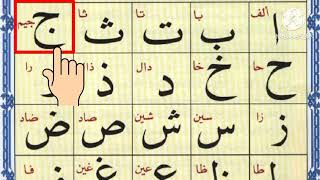 الف با تا ثا جیم
ا ب ت ث ج
حا خا دال ذال را
ح خ د ذ ر
زا سین شین صاد ضاد
ز س ش ص ض
طا ظا عین غین فا